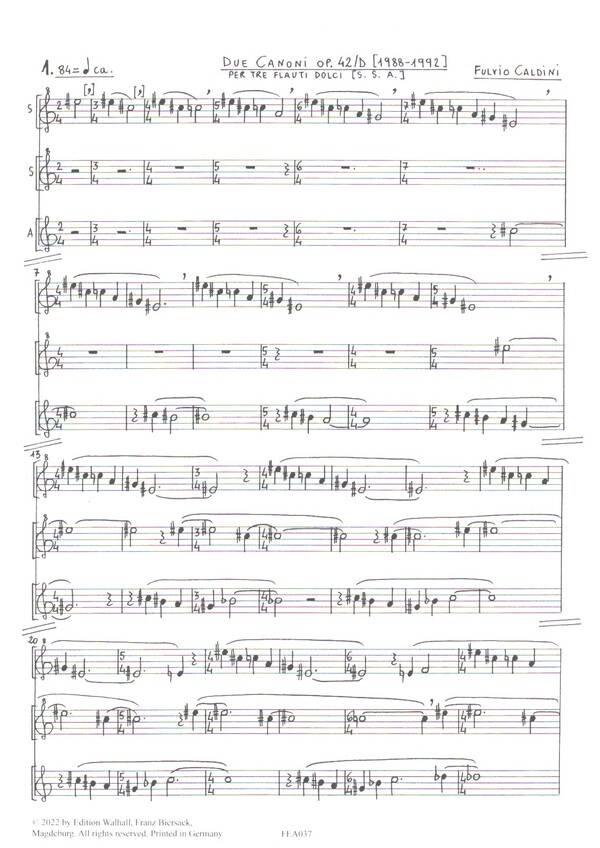 1. 84=♩ca. DUE CANONI OP. 42/D [1988-1992] FULVIO CALDINI
PER TRE FLAUTI DOLCI [S. S. A.]
S
S
A
7
13
20
© 2022 by Edition Walhall, Franz Biersack,
Magdeburg. All rights reserved. Printed in Germany FEA037